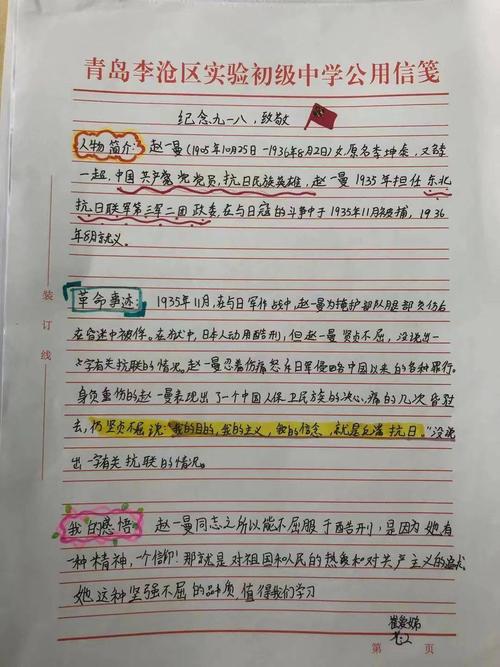 青岛李沧区实验初级中学公用信笺
纪念九一八，致敬
人物简介：赵一曼(1905年10月25日-1936年8月2日)女，原名李坤泰，又名李
一超，中国共产党党员，抗日民族英雄，赵一曼1935年担任东北
抗日联军第三军二团政委，在与日寇的斗争中于1935年11月被捕，1936
年8月就义。
革命事迹：1935年11月，在与日军作战中，赵一曼为掩护部队腿部负伤后
在昏迷中被俘。在狱中，日本人动用酷刑，但赵一曼坚贞不屈，没说出一
字有关抗联的情况。赵一曼忍着伤痛怒斥日军侵略中国以来的各种罪行。
身负重伤的赵一曼表现出了一个中国人保卫民族的决心，痛的几次昏对
去，仍坚贞不屈说：“我的目的，我的主义，我的信念，就是反满抗日。”没说
出一字有关抗联的情况。
我的感悟：赵一曼同志之所以能不屈服于酷刑，是因为她有
一种精神，一个信仰！那就是对祖国和人民的热爱和对共产主义的
她这种坚强不屈的品质值得我们学习
装
订
线
第 页